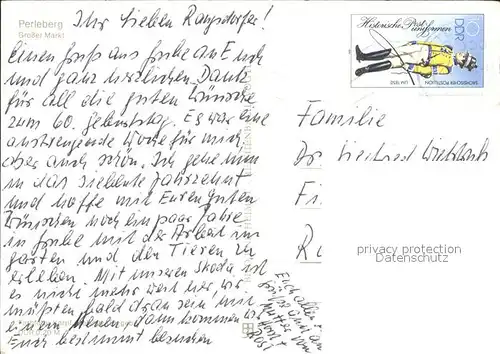 Perleberg
Großer Markt
Ihr lieben Rangsdorfer!
Einen Gruß aus Grube an Euch
und ganz herzlichen Dank
für all die guten Wünsche
zum 60. Geburtstag. Es war eine
anstrengende Woche für mich,
aber auch schön. Ich gehe nun
in das siebente Jahrzehnt
und hoffe mit Euren guten
Wünschen noch ein paar Jahre
in Grube mit der Arbeit im
Garten und den Tieren zu
erleben. Mit unserem Skoda ist
es nicht mehr weit her, wir
müßten bald dran sein mit
einem neuen dann kommen wir
Euch bestimmt besuchen
Euch allen
Grüße auch
Mutter von
Horst
Rosi
Historische Postuniformen
DDR
10
UM 1850
Familie
Dr.
Fi
Ra
privacy protection
Datenschutz